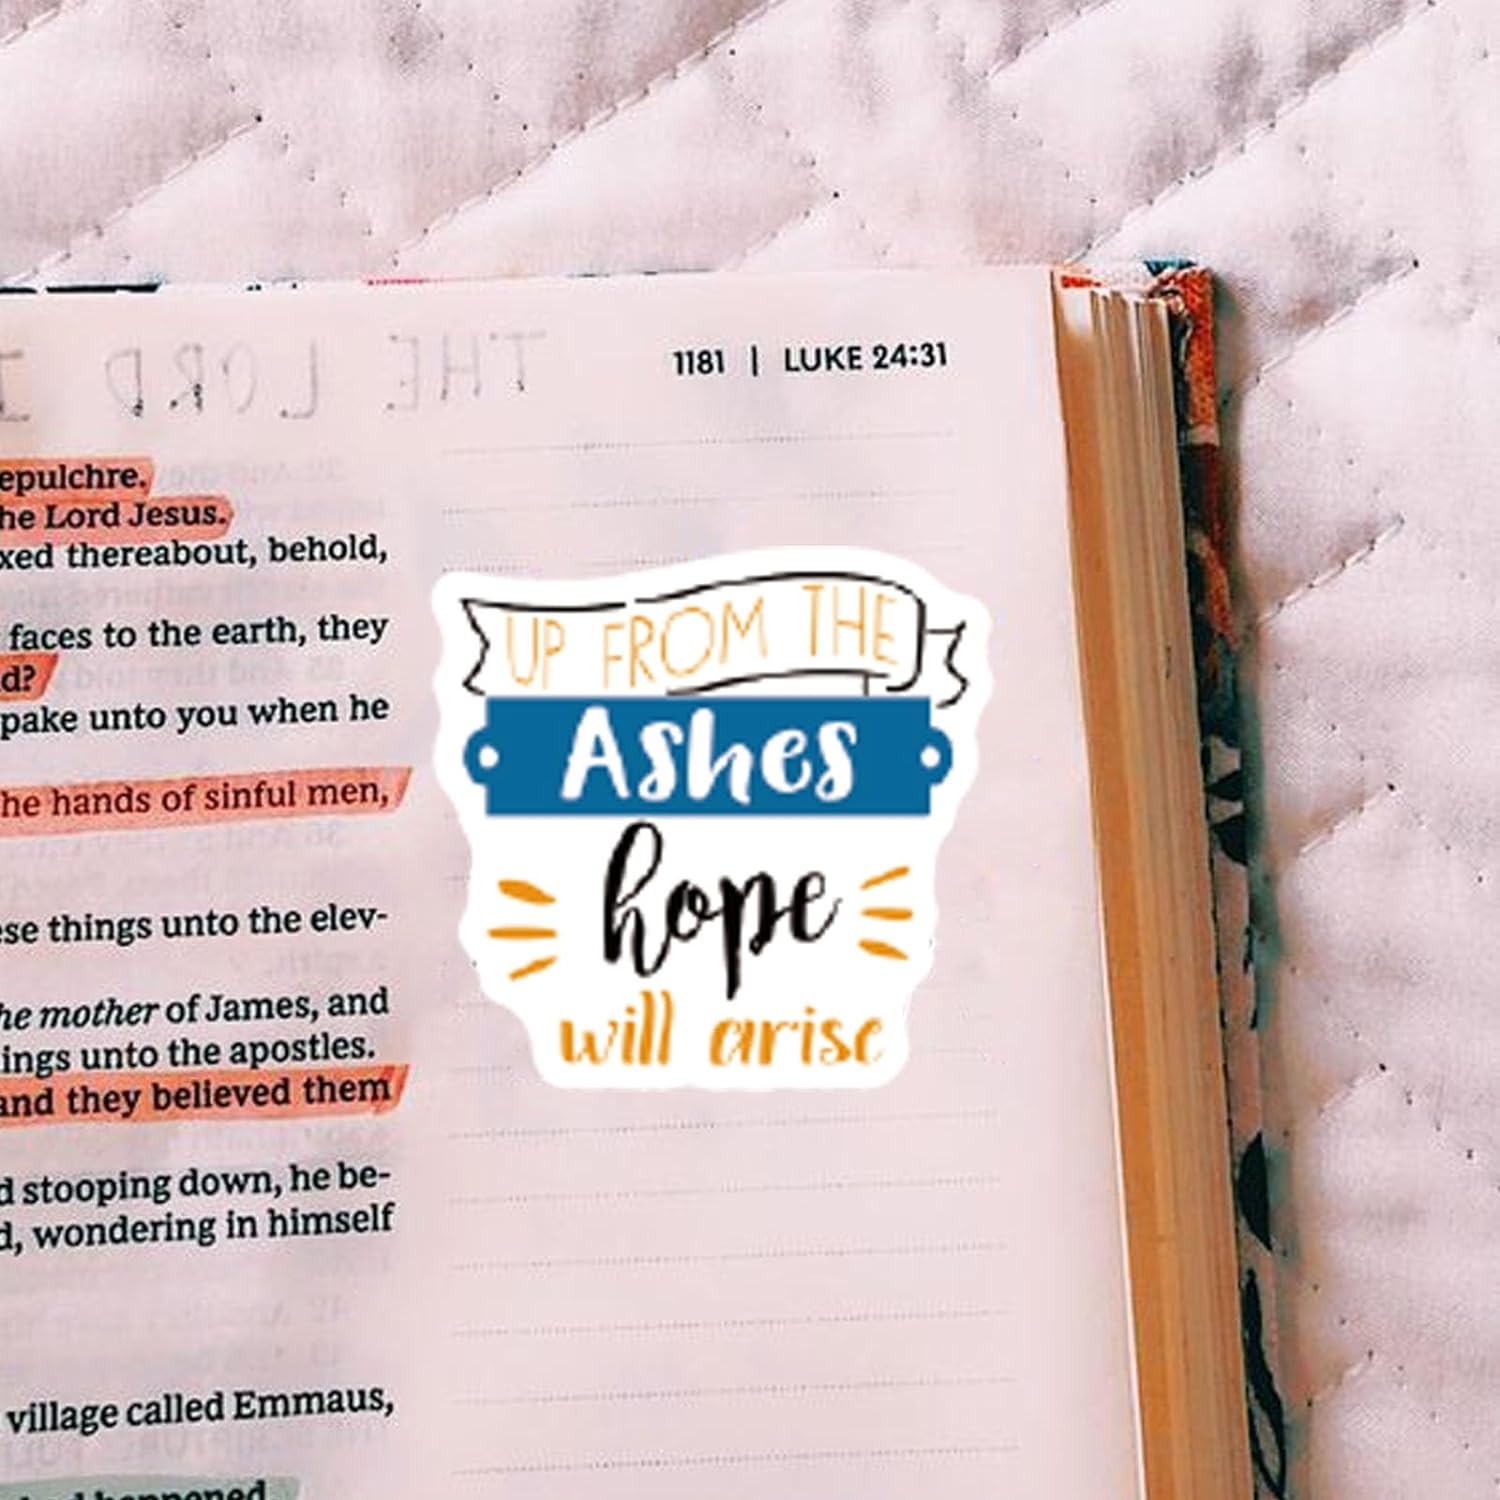 THE LORD
1181 | LUKE 24:31
epulchre.
he Lord Jesus.
xed thereabout, behold,
faces to the earth, they
d?
pake unto you when he
he hands of sinful men,
ese things unto the elev-
he mother of James, and
ings unto the apostles.
and they believed them
d stooping down, he be-
d, wondering in himself
village called Emmaus,
happened.
UP FROM THE
Ashes
hope
will arise